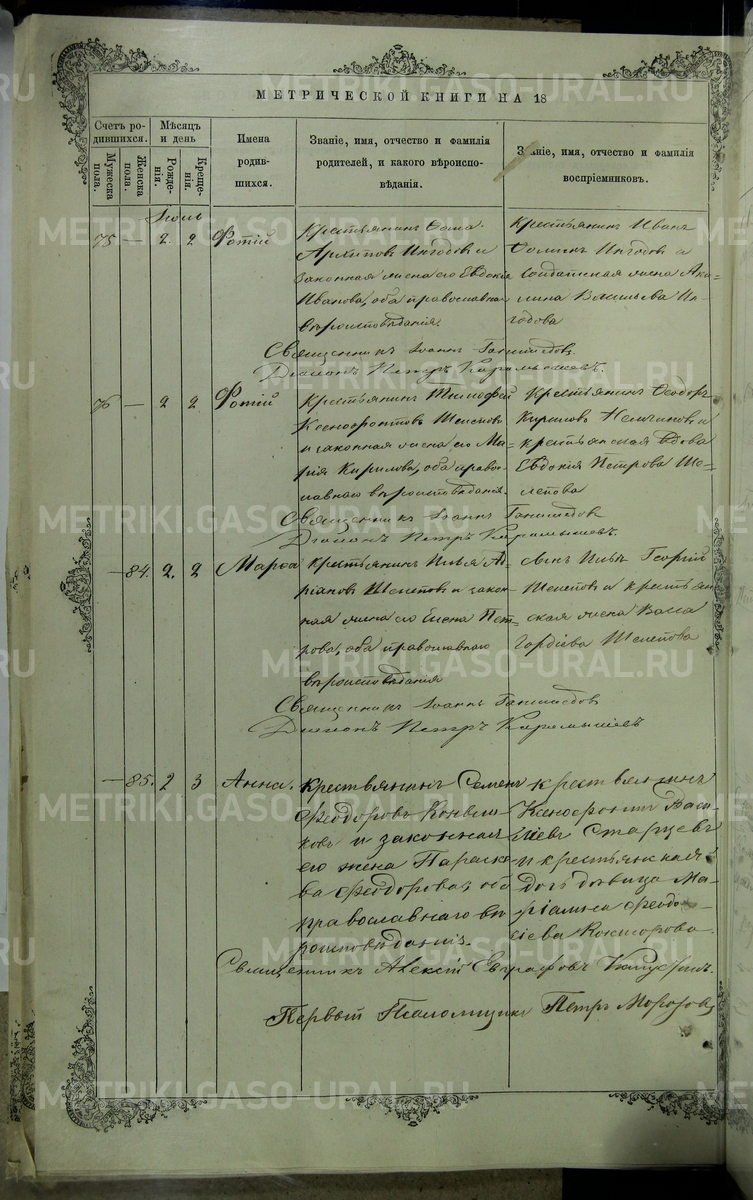 МЕТРИЧЕСКОЙ КНИГИ НА 18
Счетъ ро-
дившихся.
Мужеска
пола.
Женска
пола.
Мѣсяцъ
и день
Рожде-
нія.
Креще-
нія.
Имена
родив-
шихся.
Званіе, имя, отчество и фамилія
родителей, и какого вѣроиспо-
вѣданія.
Званіе, имя, отчество и фамилія
воспріемниковъ.
Іюль
75 — 2. 2 Фотій
Крестьянинъ Ѳома
Архиповъ и
законная жена его Евдокія
Иванова, оба православна
вѣроисповѣданія.
Крестьянинъ Иванъ
и
Солдатская жена Аку-
лина Васильева
Священникъ Іоаннъ
Діаконъ Петръ Карамышевъ.
76 — 2 2 Фотій
Крестьянинъ Тимофей
Ксенофонтовъ
и законная жена его Ма-
рія Кирилова, оба право-
славнаго вѣроисповѣданія.
Крестьянинъ Ѳеодоръ
Кириловъ и
крестьянская вдова
Евдокія Петрова Ше-
лепова
Священникъ Іоаннъ
Діаконъ Петръ Карамышевъ.
— 84. 2. 2 Марѳа
Крестьянинъ Илья А-
Шелеповъ и закон-
ная жена его Елена Пет-
рова, оба православнаго
вѣроисповѣданія
Георгій
Шелеповъ и крестьян-
ская жена Васса
Гордіева Шелепова
Священникъ Іоаннъ
Діаконъ Петръ Карамышевъ
— 85. 2 3 Анна.
Крестьянинъ Семенъ
Ѳеодоровъ
и законная
его жена Параске-
ва Ѳеодорова, оба
православнаго вѣ-
роисповѣданія.
крестьянинъ
Ксенофонтъ Васи-
льевъ Старцевъ
и крестьянская
дочь дѣвица Ма-
ріамна Ѳеодо-
сіева
Священникъ Алексій Евграфовъ
Первый Псаломщикъ Петръ Морозовъ
METRIKI.GASO-URAL.RU